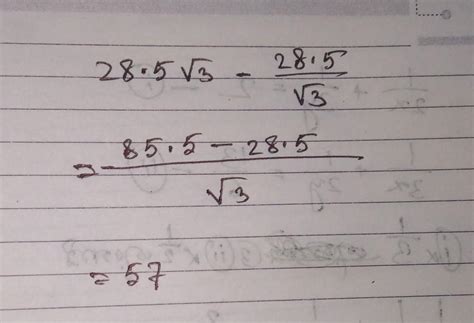 28.5√3 - 28.5/√3
= (85.5 - 28.5)/√3
= 57